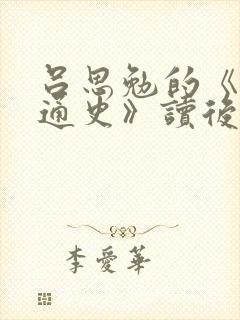 呂思勉的《
通史》讀後
李愛華